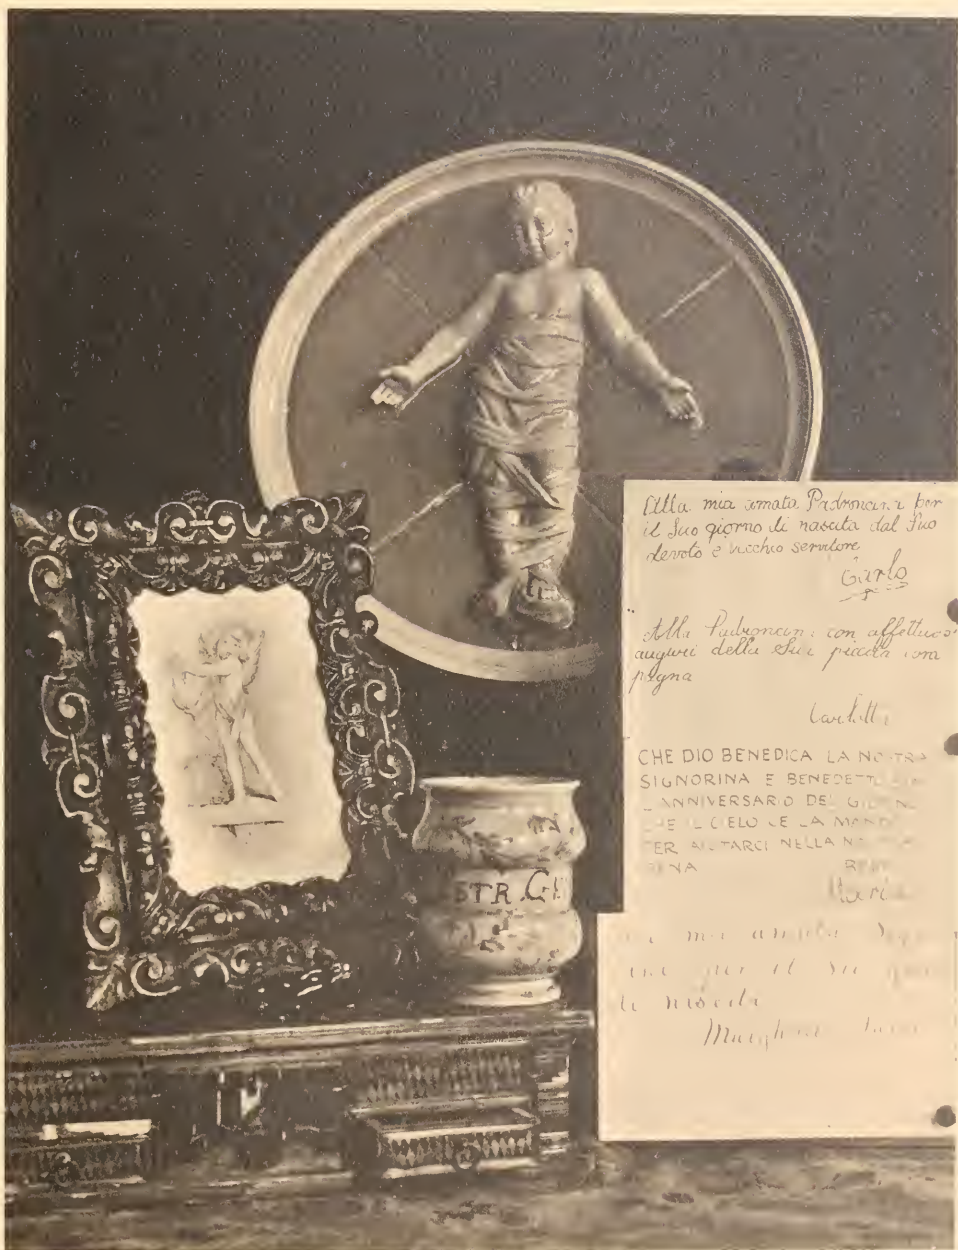 Alla mia amata Padroncina per
il Suo giorno di nascita dal Suo
devoto e vecchio servitore
Carlo
Alla Padroncina con affettuosi
auguri della Sua piccola com
pagna
Carlotta
CHE DIO BENEDICA LA NOSTRA
SIGNORINA E BENEDETTO
L'ANNIVERSARIO DEL GIORNO
CHE IL CIELO CE LA MANDÒ
PER AIUTARCI NELLA
PENA
Maria
amata
per il suo
di nascita
STR.